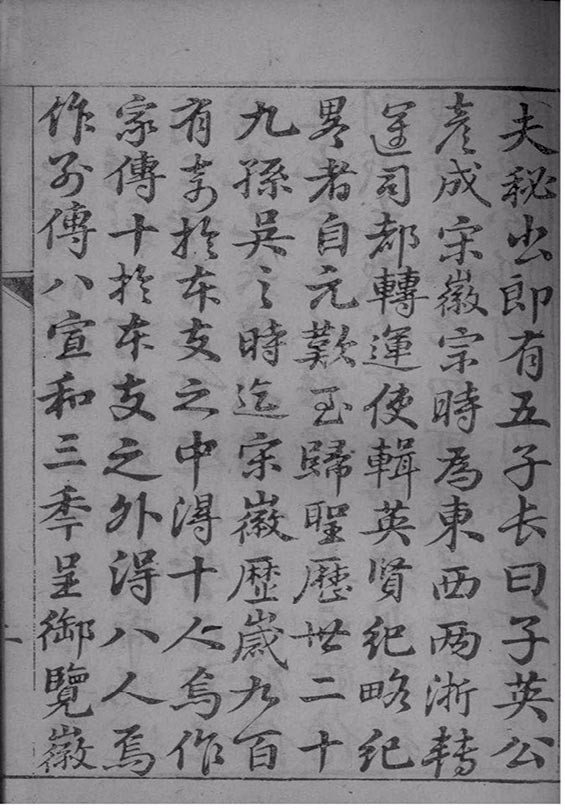 夫秘书郎有五子長曰子英公
彦成宋徽宗時為東西两浙轉
運司都轉運使輯英賢紀略紀
畧者自元歎至歸聖歷世二十
九孫吳之時迄宋徽歷歲九百
有奇於本支之中得十人焉作
家傳十於本支之外得八人焉
作列傳八宣和三秊呈御覽徽